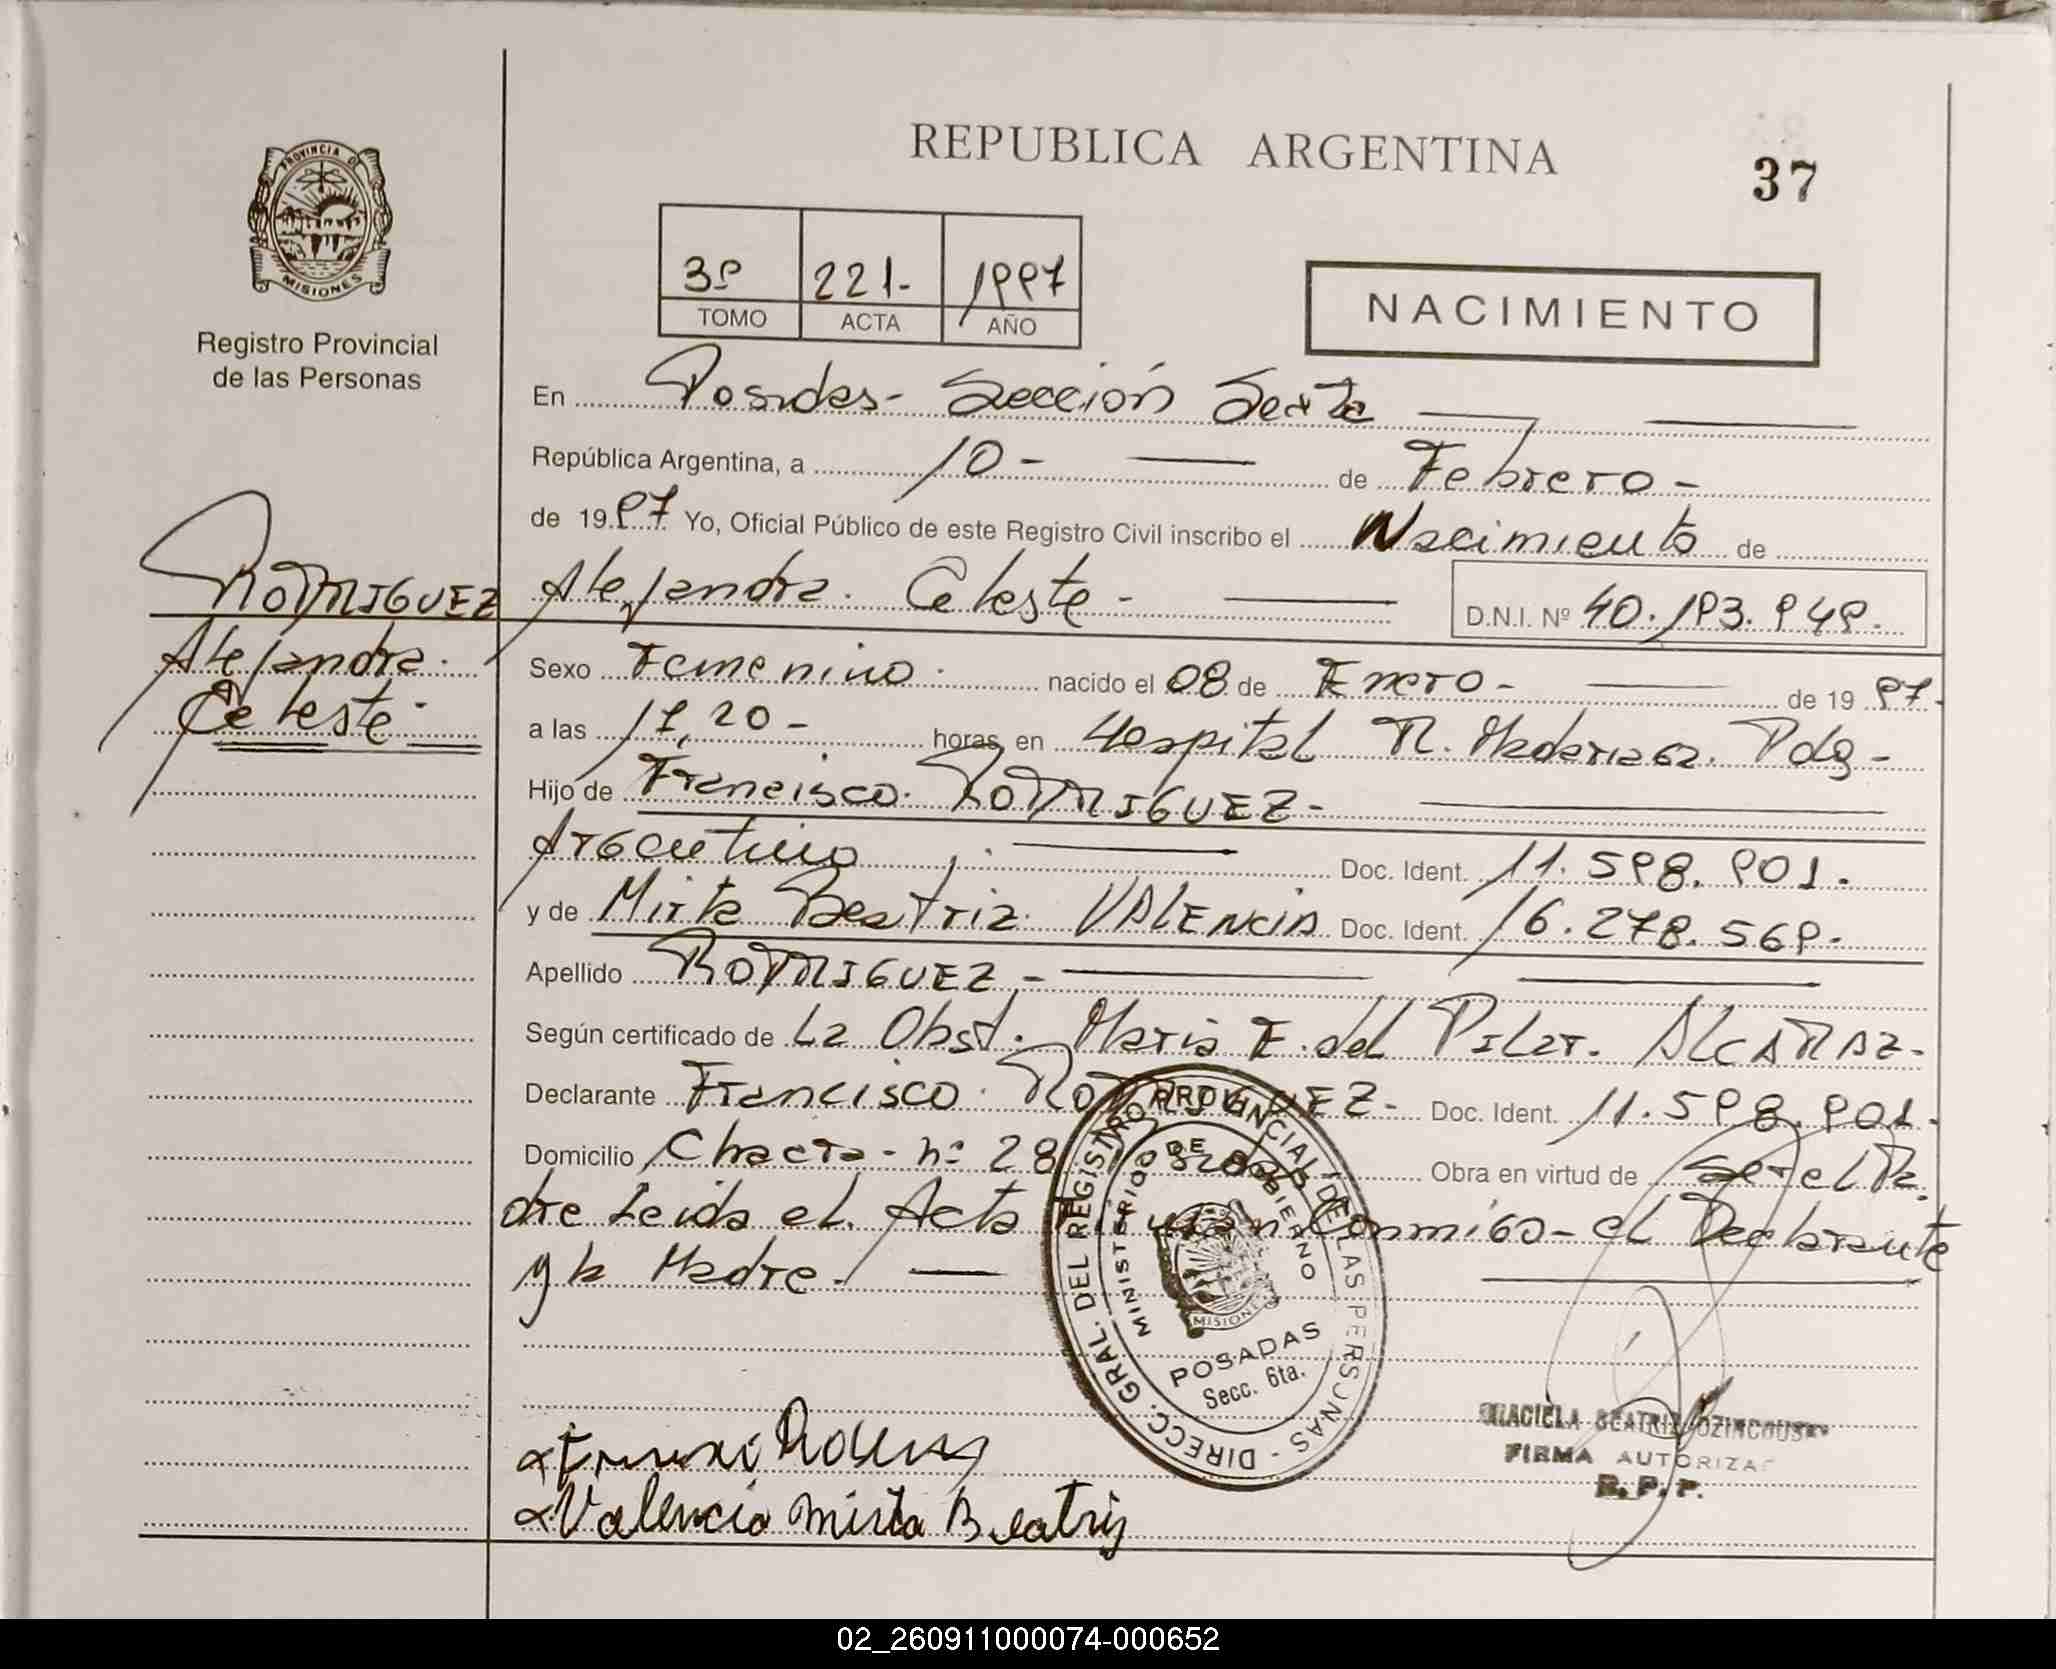 REPUBLICA ARGENTINA
37
PROVINCIA DE
MISIONES
Registro Provincial
de las Personas
3º 221- 1997
TOMO ACTA AÑO
NACIMIENTO
En Posadas - Sección Sexta
República Argentina, a 10 - de Febrero -
de 1997 Yo, Oficial Público de este Registro Civil inscribo el Nacimiento de
RODRIGUEZ
Alejandra
Celeste
Alejandra Celeste - D.N.I. Nº 40.193.949.
Sexo Femenino nacido el 08 de Enero - de 1997.
a las 17,20 - horas, en Hospital R. Madariaga. Pdas -
Hijo de Francisco RODRIGUEZ -
Argentino Doc. Ident. 11.598.901.
y de Mirta Beatriz VALENCIA Doc. Ident. 16.278.569.
Apellido RODRIGUEZ -
Según certificado de La Obst. Maria E. del Pilar. ALCARAZ -
Declarante Francisco RODRIGUEZ - Doc. Ident. 11.598.901.
Domicilio Chacra - nº 28 Posadas Obra en virtud de Ser el Pa
dre Leida el Acta firman Conmigo - el Declarante
y la Madre.
DIRECC. GRAL. DEL REGISTRO PROVINCIAL DE LAS PERSONAS -
MINISTERIO DE GOBIERNO
MISIONES
POSADAS
Secc. 6ta.
Valencia Mirta Beatriz
GRACIELA BEATRIZ
FIRMA AUTORIZA
R.P.P.
02_260911000074-000652